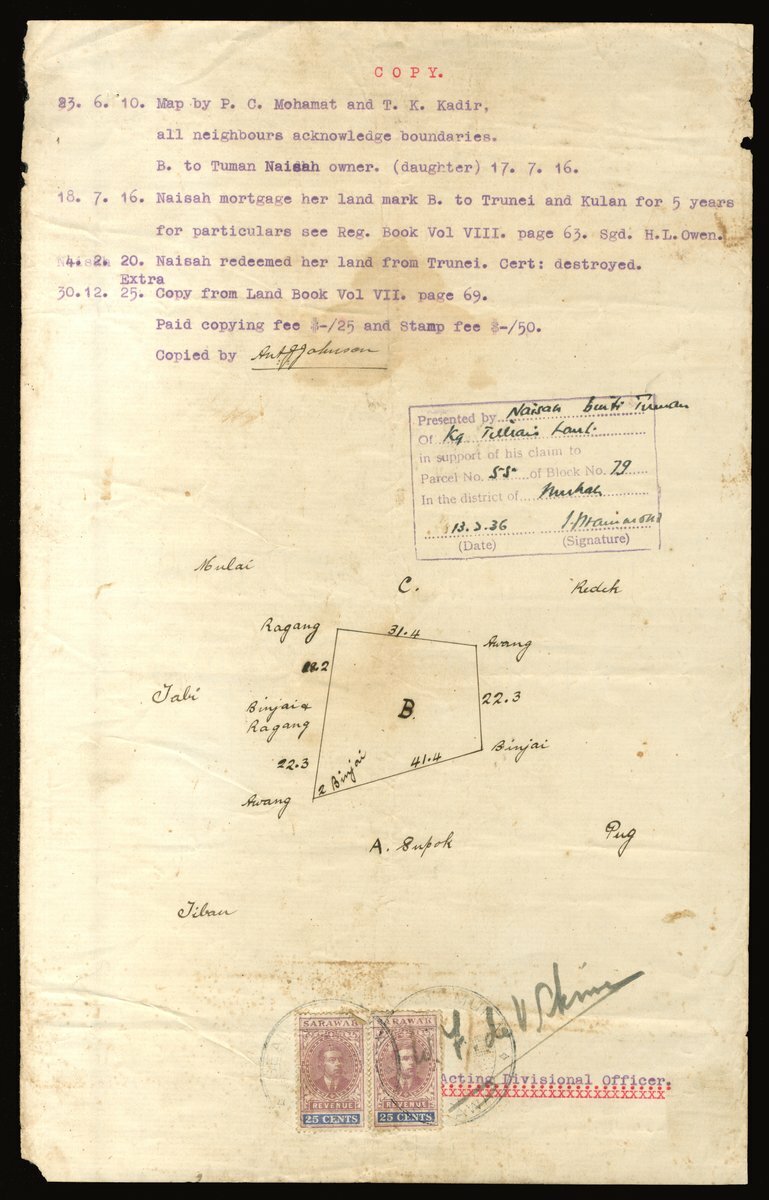 COPY.
23. 6. 10. Map by P. C. Mohamat and T. K. Kadir,
all neighbours acknowledge boundaries.
B. to Tuman Naisah owner. (daughter) 17. 7. 16.
18. 7. 16. Naisah mortgage her land mark B. to Trunei and Kulan for 5 years
for particulars see Reg. Book Vol VIII. page 63. Sgd. H.L.Owen.
4. 2. 20. Naisah redeemed her land from Trunei. Cert: destroyed.
Extra
30.12. 25. Copy from Land Book Vol VII. page 69.
Paid copying fee $-/25 and Stamp fee $-/50.
Copied by Johnson
Presented by Naisah binti Tuman
Of Kg Tillian Laut.
in support of his claim to
Parcel No. 55 of Block No. 79
In the district of Mukah
13.3.36
(Date) (Signature)
Mulai
C.
Redek
Ragang
31.4
Awang
18.2
Jabi
Binjai &
Ragang
B.
22.3
22.3
2 Binjai
41.4
Binjai
Awang
A. Supok
Pug
Jiban
SARAWAK SARAWAK
REVENUE REVENUE
25 CENTS 25 CENTS
Acting Divisional Officer.
xxxxxxxxxxxxxxxxxxxxxxxxxx